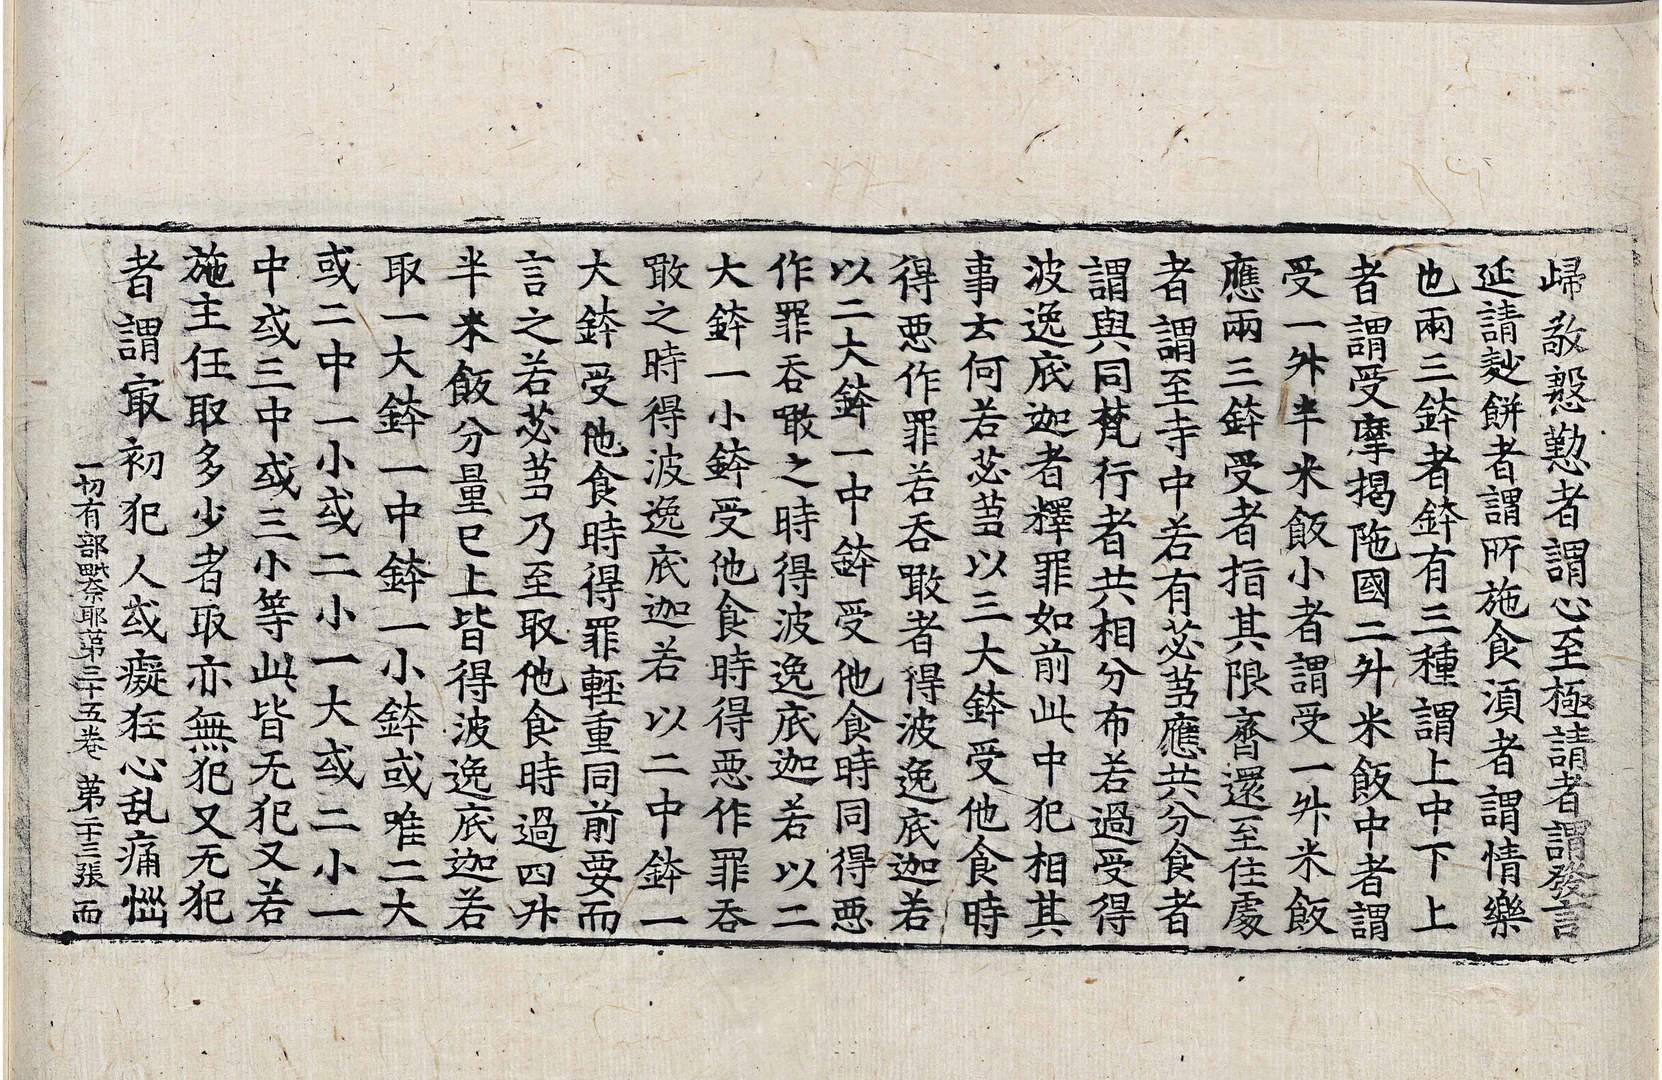 歸敬慇懃者謂心至極請者謂發言
延請麨餅者謂所施食湏者謂情樂
也兩三鉢者鉢有三種謂上中下上
者謂受摩揭陁國二升米飯中者謂
受一升半米飯小者謂受一升米飯
應兩三鉢受者指其限齊還至住處
者謂至寺中若有苾芻應共分食者
謂與同梵行者共相分布若過受得
波逸底迦者釋罪如前此中犯相其
事去何若苾芻以三大鉢受他食時
得惡作罪若吞噉者得波逸底迦若
以二大鉢一中鉢受他食時同得惡
作罪吞噉之時得波逸底迦若以二
大鉢一小鉢受他食時得惡作罪吞
噉之時得波逸底迦若以二中鉢一
大鉢受他食時得罪輕重同前要而
言之若苾芻乃至取他食時過四升
半米飯分量已上皆得波逸底迦若
取一大鉢一中鉢一小鉢或唯二大
或二中一小或二小一大或二小一
中或三中或三小等此皆无犯又若
施主任取多少者取亦無犯又无犯
者謂㝡初犯人或癡狂心乱痛惱
一切有部毗奈耶第三十五卷 第二十三張 而